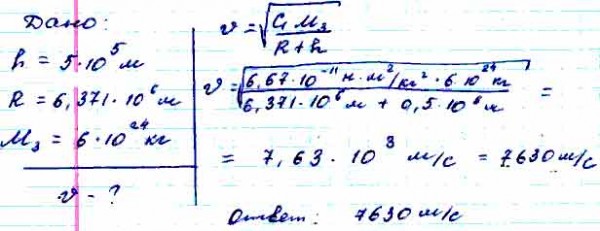 Дано:
h = 5·10⁵ м
R = 6,371·10⁶ м
M₃ = 6·10²⁴ кг
v - ?
v = √(G M₃ / (R + h))
v = √(6,67·10⁻¹¹ Н·м²/кг² · 6·10²⁴ кг / (6,371·10⁶ м + 0,5·10⁶ м)) =
= 7,63·10³ м/с = 7630 м/с
Ответ: 7630 м/с